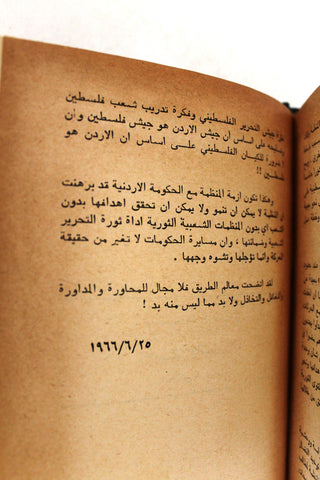 جيش التحرير الفلسطيني وفكرة تدريب شعب فلسطين
على اساس ان جيش الاردن هو جيش فلسطين وان
لا ضرورة للكيان الفلسطيني على اساس ان الاردن هو
فلسطين !!
وهكذا تكون ازمة المنظمة مع الحكومة الاردنية قد برهنت
ان المنظمة لا يمكن ان تنمو ولا يمكن ان تحقق اهدافها بدون
الشعب اي بدون المنظمات الشعبية الثورية اداة ثورة التحرير
الشعبية وضمانتها ، وان مسايرة الحكومات لا تغير من حقيقة
المعركة وانما تؤجلها وتشوه وجهها .
لقد اتضحت معالم الطريق فلا مجال للمحاورة والمداورة
والتخاذل ولا بد مما ليس منه بد !
١٩٦٦/٦/٢٥